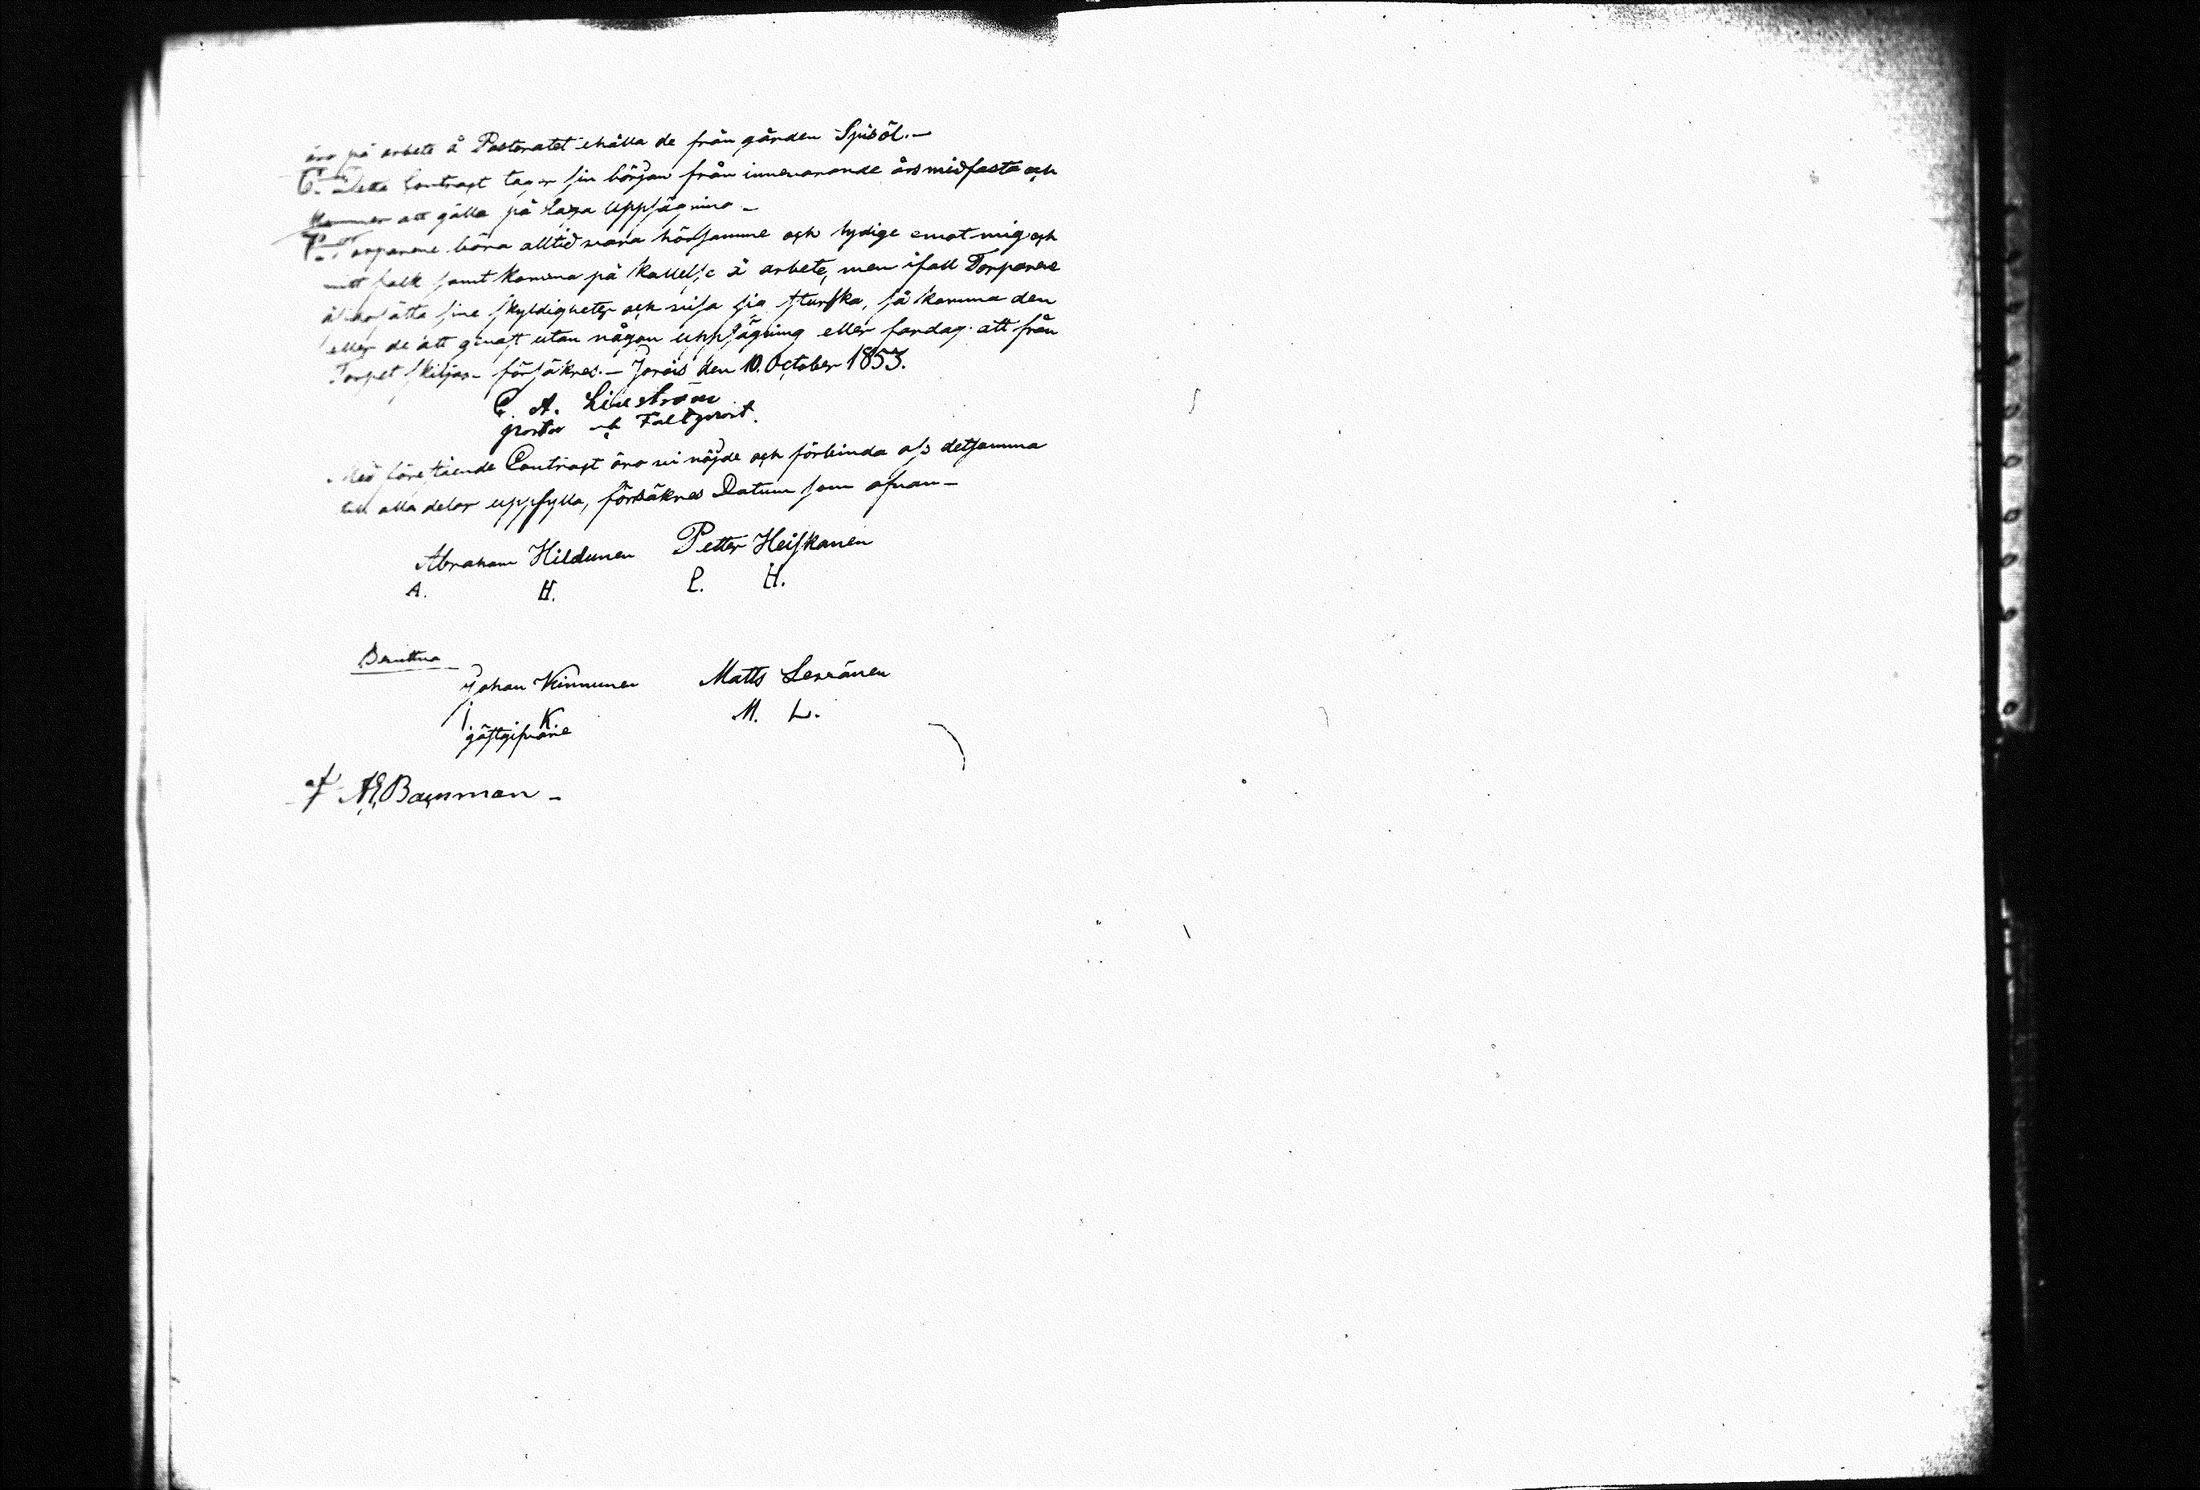 äro på arbete å Pastoratet ehålla de från gården Spisöl.—
6:o Detta Contract tager sin början från innevarande års midfasta och
kommer att gälla på laga uppsägning —
7:o Torparene böra alltid vara hörsamme och lydige emot mig och
mitt folk samt komma på kallelse å arbete, men ifall Torparene
åsidosätta sine skyldigheter och visa sig sturska, så komma den
eller de att genast utan någon uppsägning eller fardag att från
Torpet skiljas – försäkres.— Jorois den 10. October 1853.
C. A. Lineström
prost och Fältprost.
Med föreståendе Contract äro vi nöjde och förbinda oss detsamma
till alla delar uppfylla, försäkres Datum som ofvan —
Abraham Hildunen Petter Heiskanen
A. H. P. H.
Bevittna
Johan Kinnunen Matts Leväinen
J. K. M. L.
gästgifvare
af A.E. Bagman —